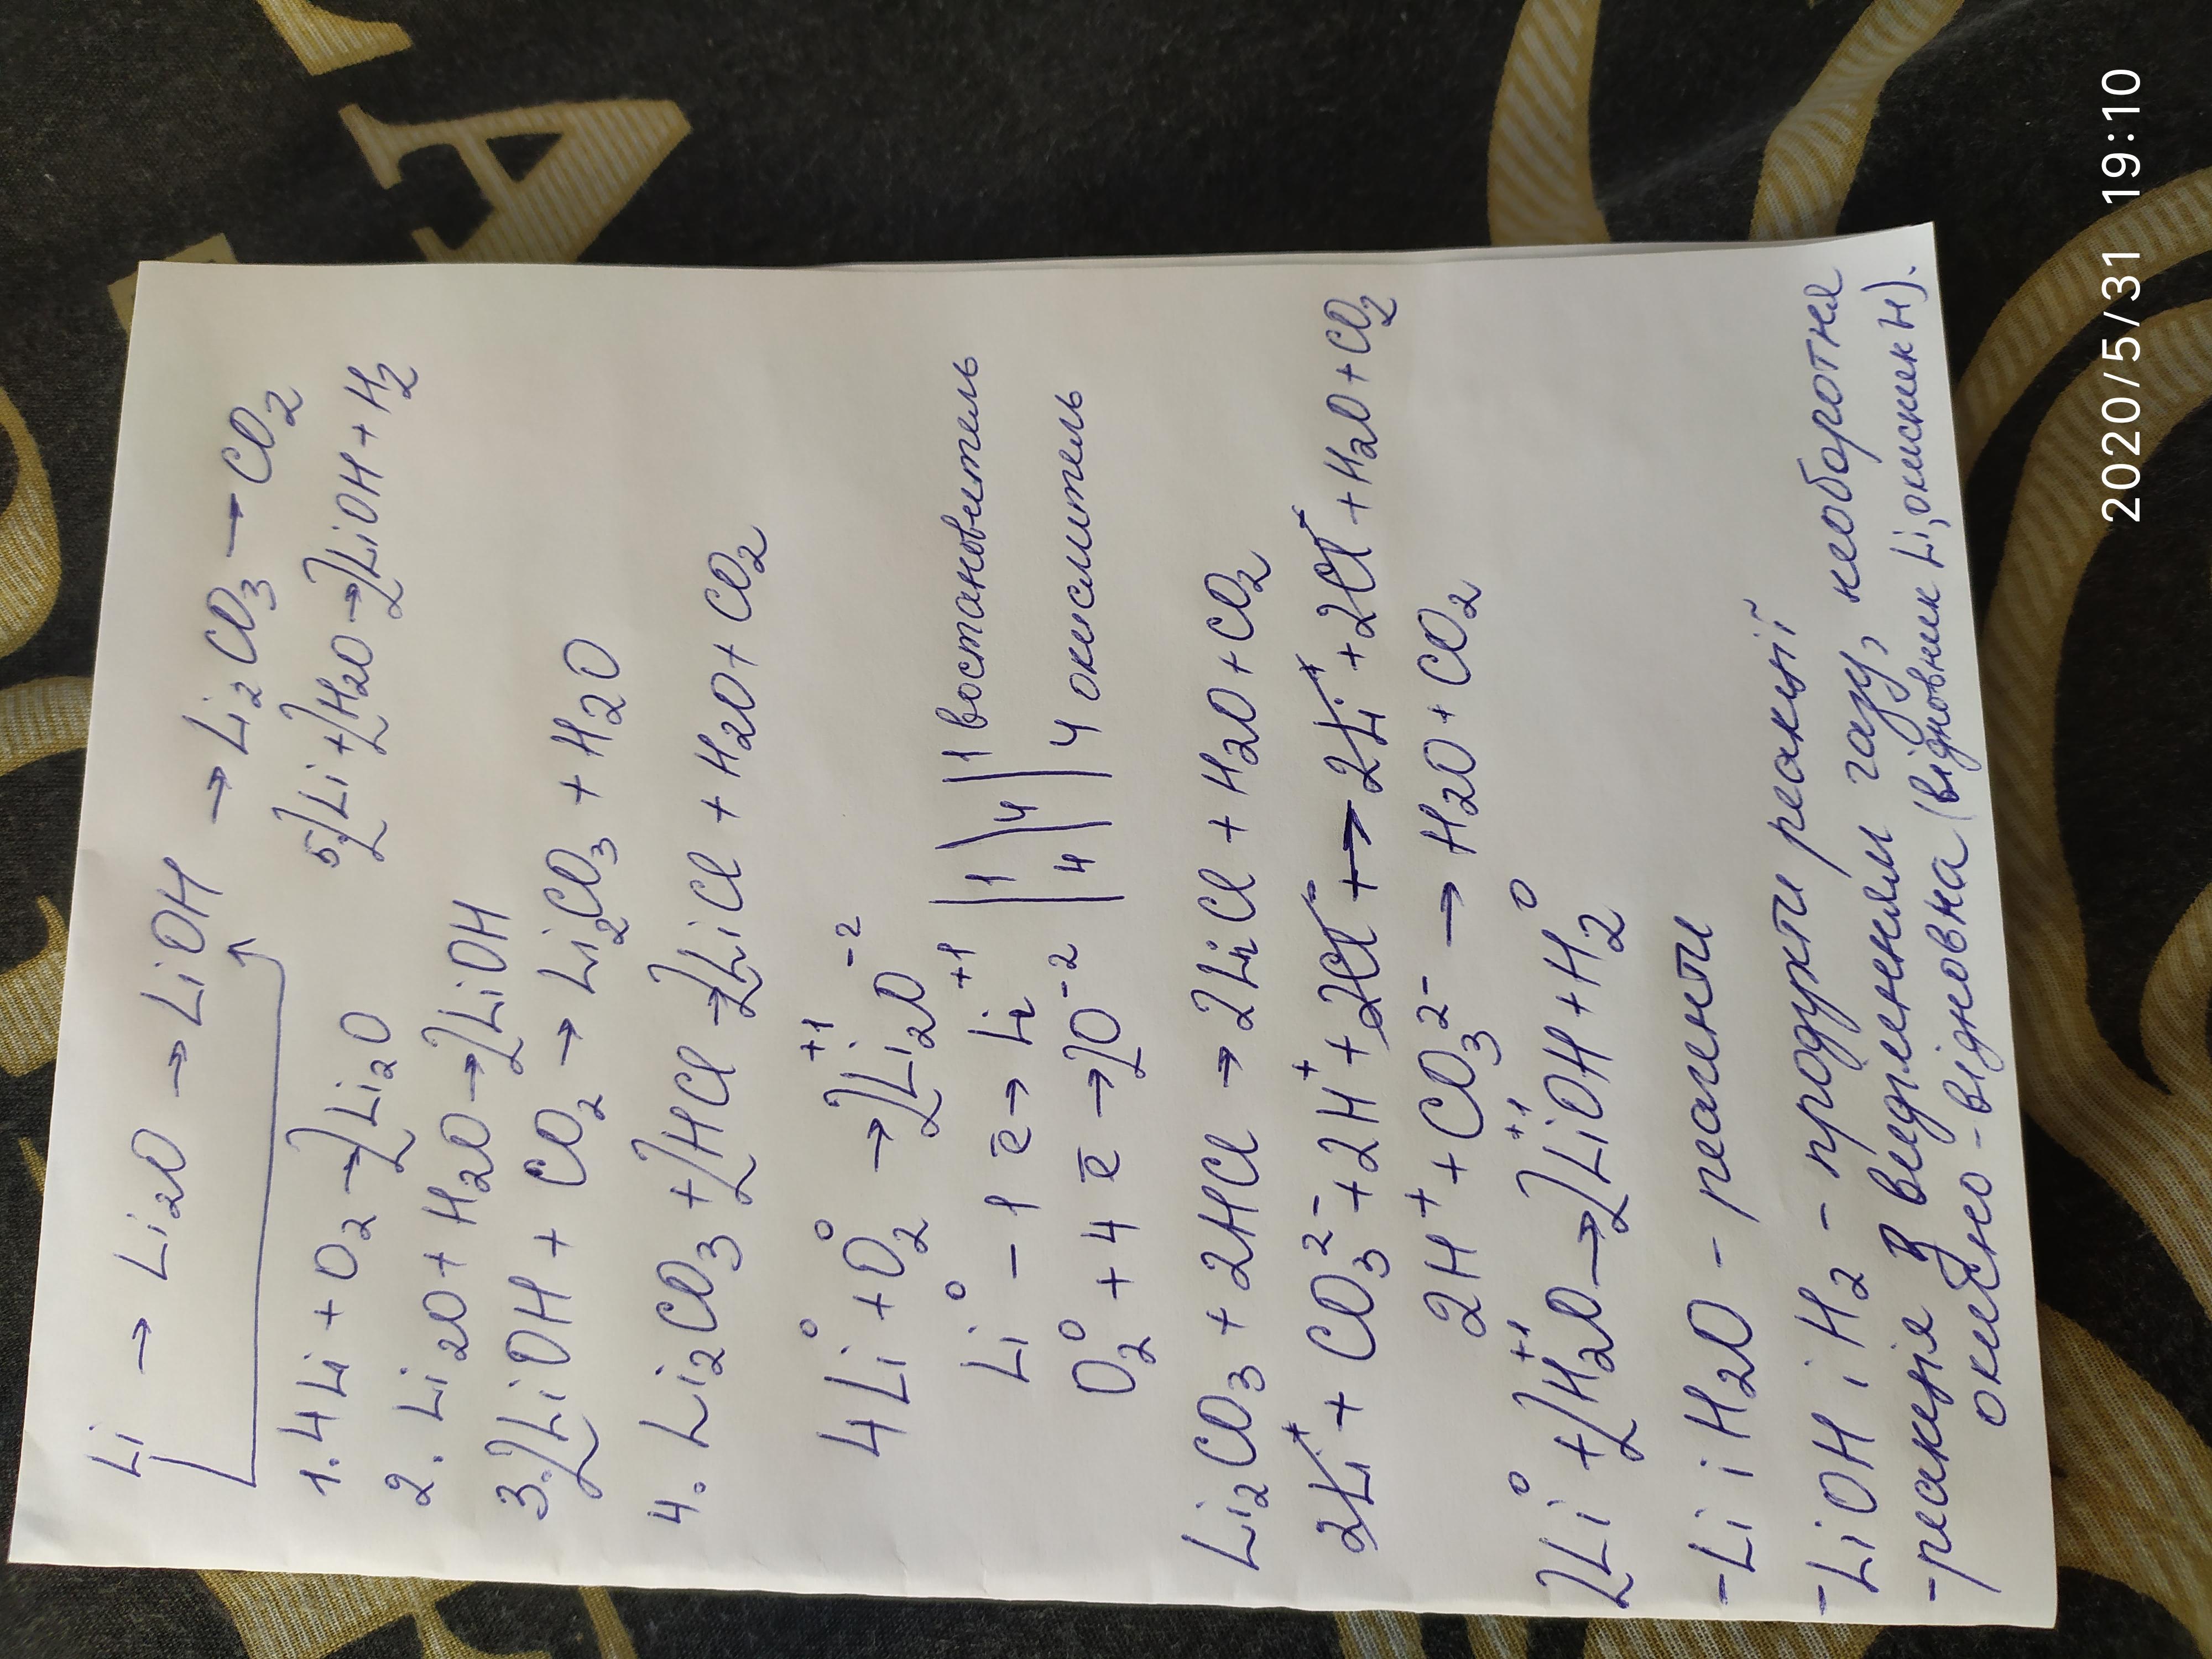 Li → Li₂O → LiOH → Li₂CO₃ → CO₂
1. 4Li + O₂ → 2Li₂O
5) 2Li + 2H₂O → 2LiOH + H₂
2. Li₂O + H₂O → 2LiOH
3. 2LiOH + CO₂ → Li₂CO₃ + H₂O
4. Li₂CO₃ + 2HCl → 2LiCl + H₂O + CO₂
4Li⁰ + O₂⁰ → 2Li₂⁺¹O⁻²
Li⁰ – 1ē → Li⁺¹ | 1 | 4 | 1 востановитель
O₂⁰ + 4ē → 2O⁻² | 4 | 4 окислитель
Li₂CO₃ + 2HCl → 2LiCl + H₂O + CO₂
2Li⁺ + CO₃²⁻ + 2H⁺ + 2Cl⁻ → 2Li⁺ + 2Cl⁻ + H₂O + CO₂
2H⁺ + CO₃²⁻ → H₂O + CO₂
2Li⁰ + 2H₂⁺¹O → 2Li⁺¹OH + H₂⁰
- Li i H₂O - реагенти
- LiOH i H₂ - продукти реакції
- реакція з виділенням газу, необоротня
окисно-відновна (відновник Li, окисник H).
A
2020/5/31 19:10